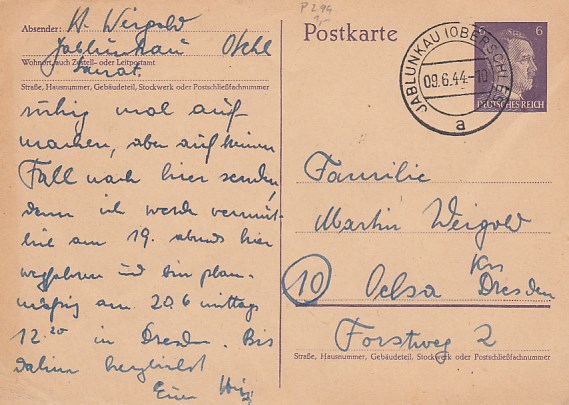 P 299
Absender: H. Weigold
Jablunkau O/Schl
Wohnort, auch Zustell- oder Leitpostamt
Sanat.
Straße, Hausnummer, Gebäudeteil, Stockwerk oder Postschließfachnummer
ruhig mal auf-
machen, aber auf keinen
Fall nach hier senden,
denn ich werde vermut-
lich am 19. abends hier
wegfahren und bin plan-
mäßig am 20.6 mittags
12.20 in Dresden. Bis
dahin herzlichst
Euer
Postkarte
6 6
DEUTSCHES REICH
JABLUNKAU (OBERSCHLES)
09.6.44-10
a
Familie
Martin Weigold
10 Oelsa Krs Dresden
Forstweg 2
Straße, Hausnummer, Gebäudeteil, Stockwerk oder Postschließfachnummer